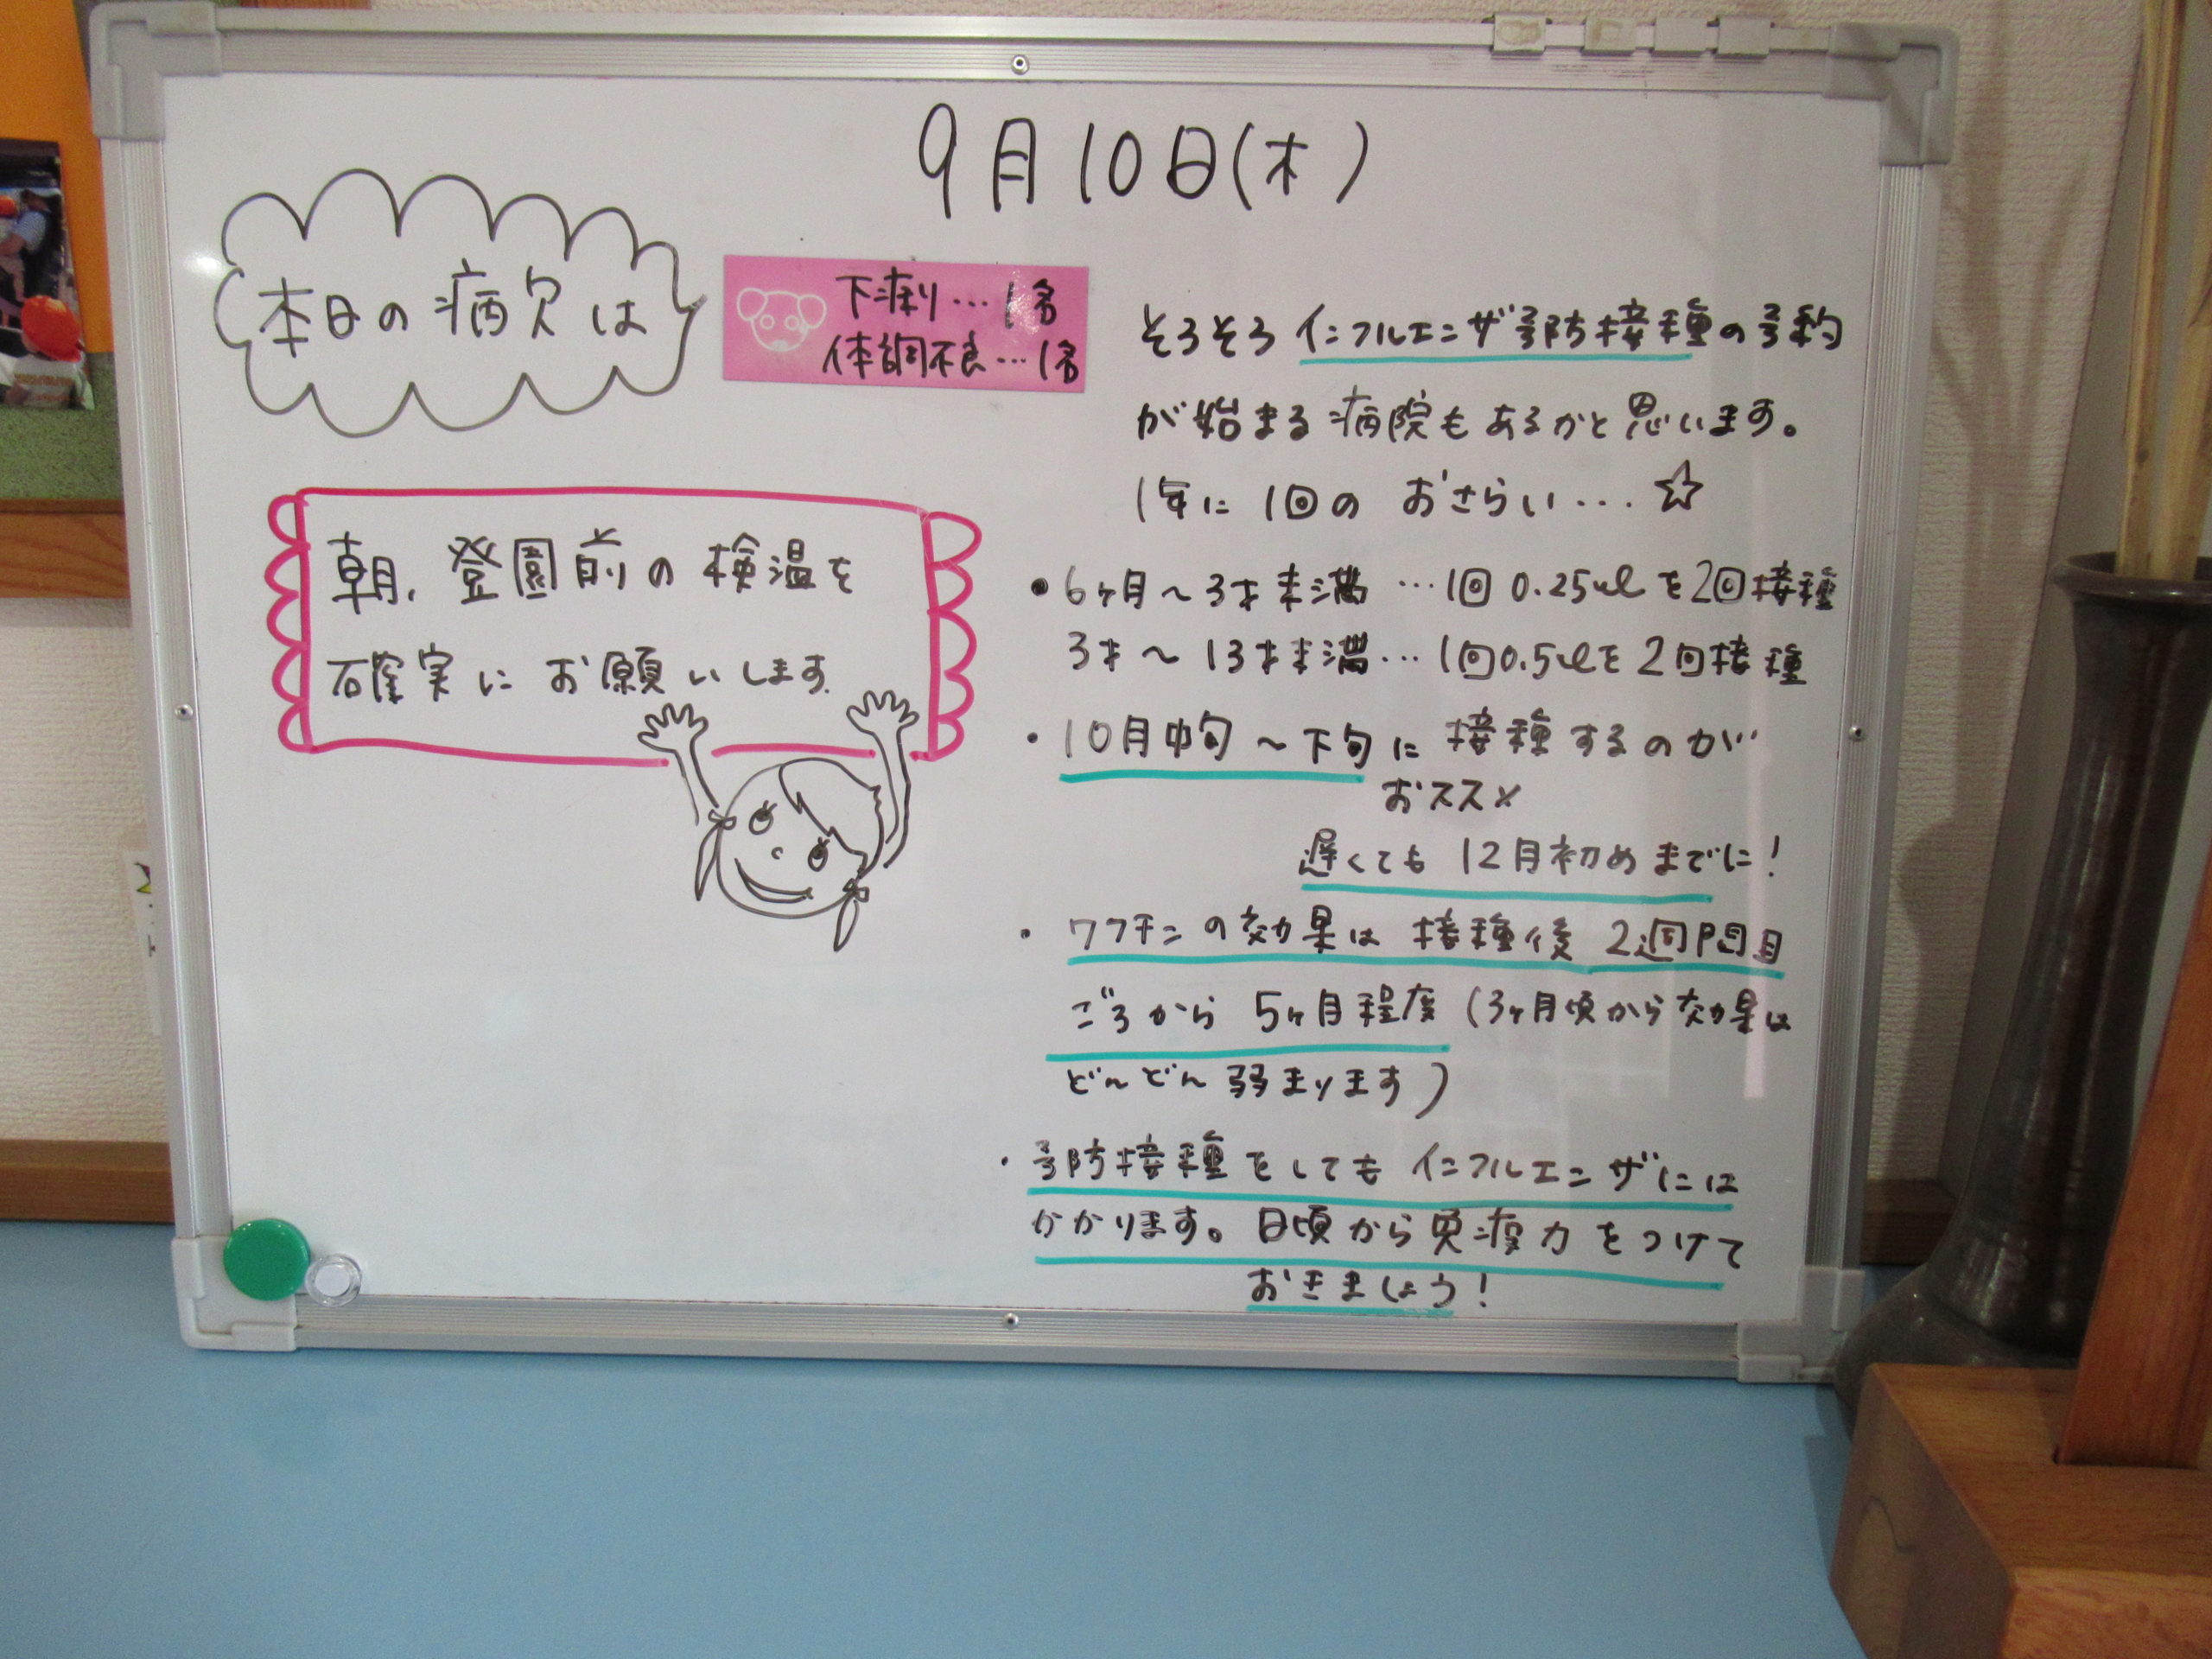 9月10日(木)
本日の病欠は
下痢…1名
体調不良…1名
朝、登園前の検温を
確実にお願いします。
そろそろインフルエンザ予防接種の予約
が始まる病院もあるかと思います。
1年に1回のおさらい…☆
・6ヶ月～3才未満…1回0.25mlを2回接種
3才～13才未満…1回0.5mlを2回接種
・10月中旬～下旬に接種するのが
おススメ
遅くても12月初めまでに!
・ワクチンの効果は接種後2週間目
ごろから5ヶ月程度(3ヶ月頃から効果は
どんどん弱まります)
・予防接種をしてもインフルエンザには
かかります。日頃から免疫力をつけて
おきましょう!